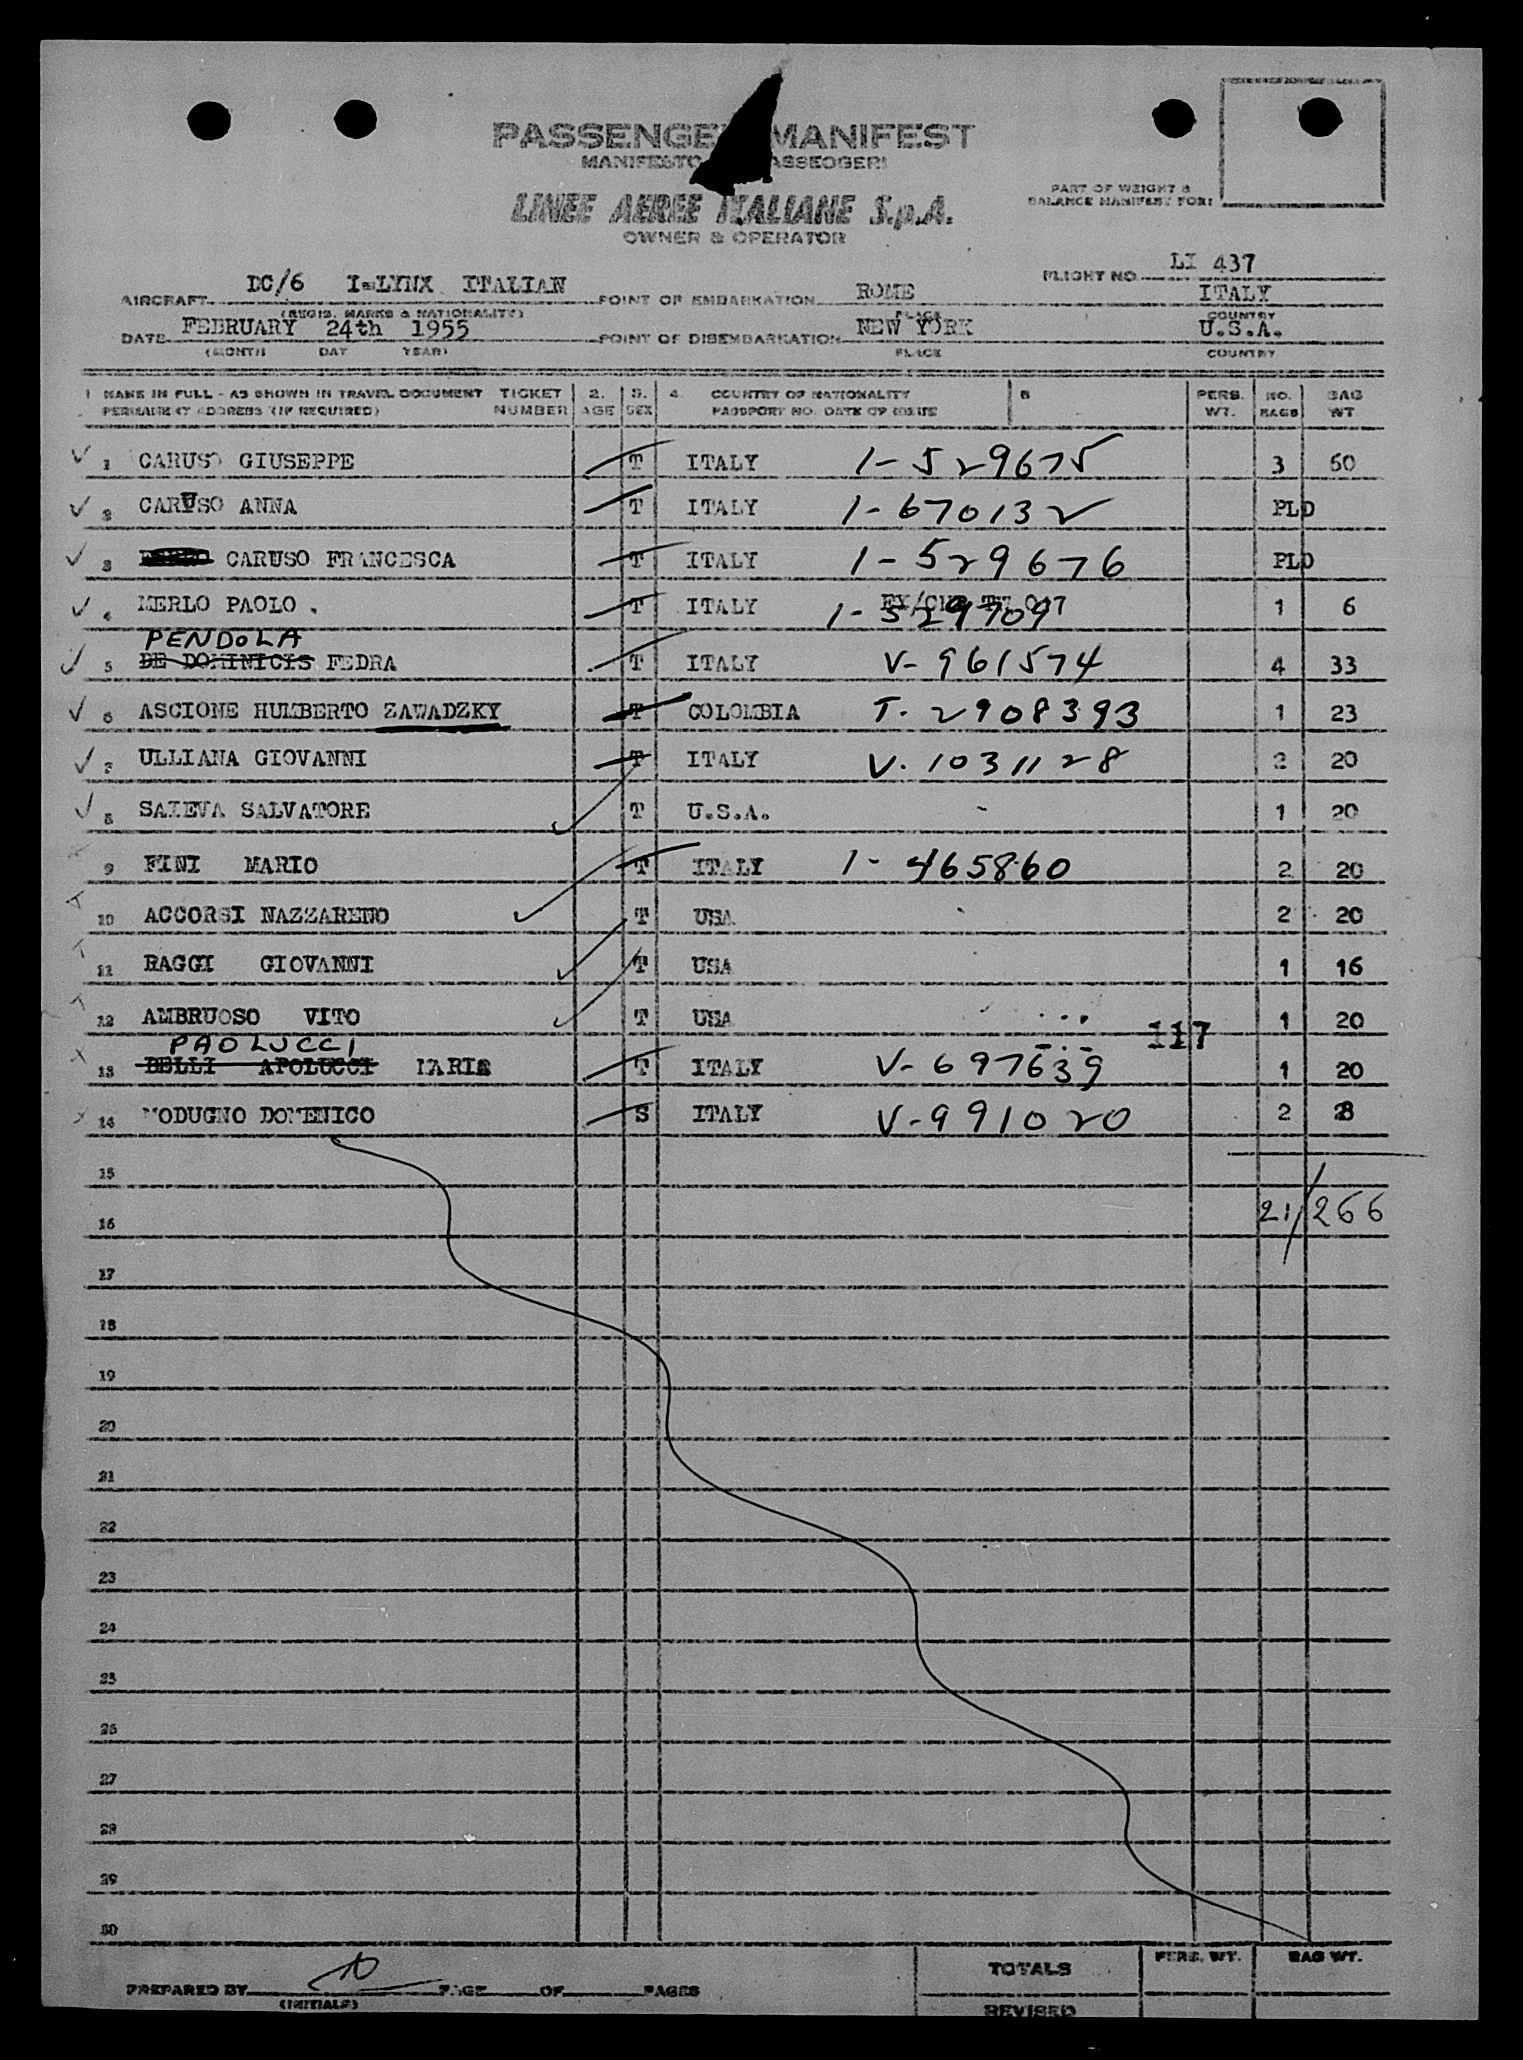 PASSENGER MANIFEST
MANIFESTO PASSEGGERI
LINEE AEREE ITALIANE S.p.A.
OWNER & OPERATOR
PART OF WEIGHT &
BALANCE MANIFEST FOR:
FLIGHT NO. LI 437
AIRCRAFT DC/6 I-LYNX ITALIAN POINT OF EMBARKATION ROME ITALY
(REGIS. MARKS & NATIONALITY) PLACE COUNTRY
DATE FEBRUARY 24th 1955 POINT OF DISEMBARKATION NEW YORK U.S.A.
(MONTH DAY YEAR) PLACE COUNTRY
1 NAME IN FULL - AS SHOWN IN TRAVEL DOCUMENT TICKET 2. 3. 4. COUNTRY OF NATIONALITY 5 PERS. NO. BAG
PERMANENT ADDRESS (IF REQUIRED) NUMBER AGE SEX PASSPORT NO. DATE OF ISSUE WT. BAGS WT
1 CARUSO GIUSEPPE T ITALY 1-529675 3 60
2 CARUSO ANNA T ITALY 1-670132 PLD
3 CARUSO FRANCESCA T ITALY 1-529676 PLD
4 MERLO PAOLO . T ITALY 1-529709 1 6
PENDOLA
5 DE DOMINICIS FEDRA T ITALY V-961574 4 33
6 ASCIONE HUMBERTO ZAWADZKY T COLOMBIA T-2908393 1 23
7 ULLIANA GIOVANNI T ITALY V.1031128 2 20
8 SAIEVA SALVATORE T U.S.A. - 1 20
9 FINI MARIO T ITALY 1-465860 2 20
10 ACCORSI NAZZARENO T USA 2 20
11 RAGGI GIOVANNI T USA 1 16
12 AMBRUOSO VITO T USA 1 20
117
PAOLUCCI
13 BELLI APOLUCCI MARIA T ITALY V-697639 1 20
14 MODUGNO DOMENICO S ITALY V-991020 2 28
15
21/266
16
17
18
19
20
21
22
23
24
25
26
27
28
29
30
TOTALS PERS. WT. BAG WT.
PREPARED BY PAGE OF PAGES
(INITIALS)
REVISED